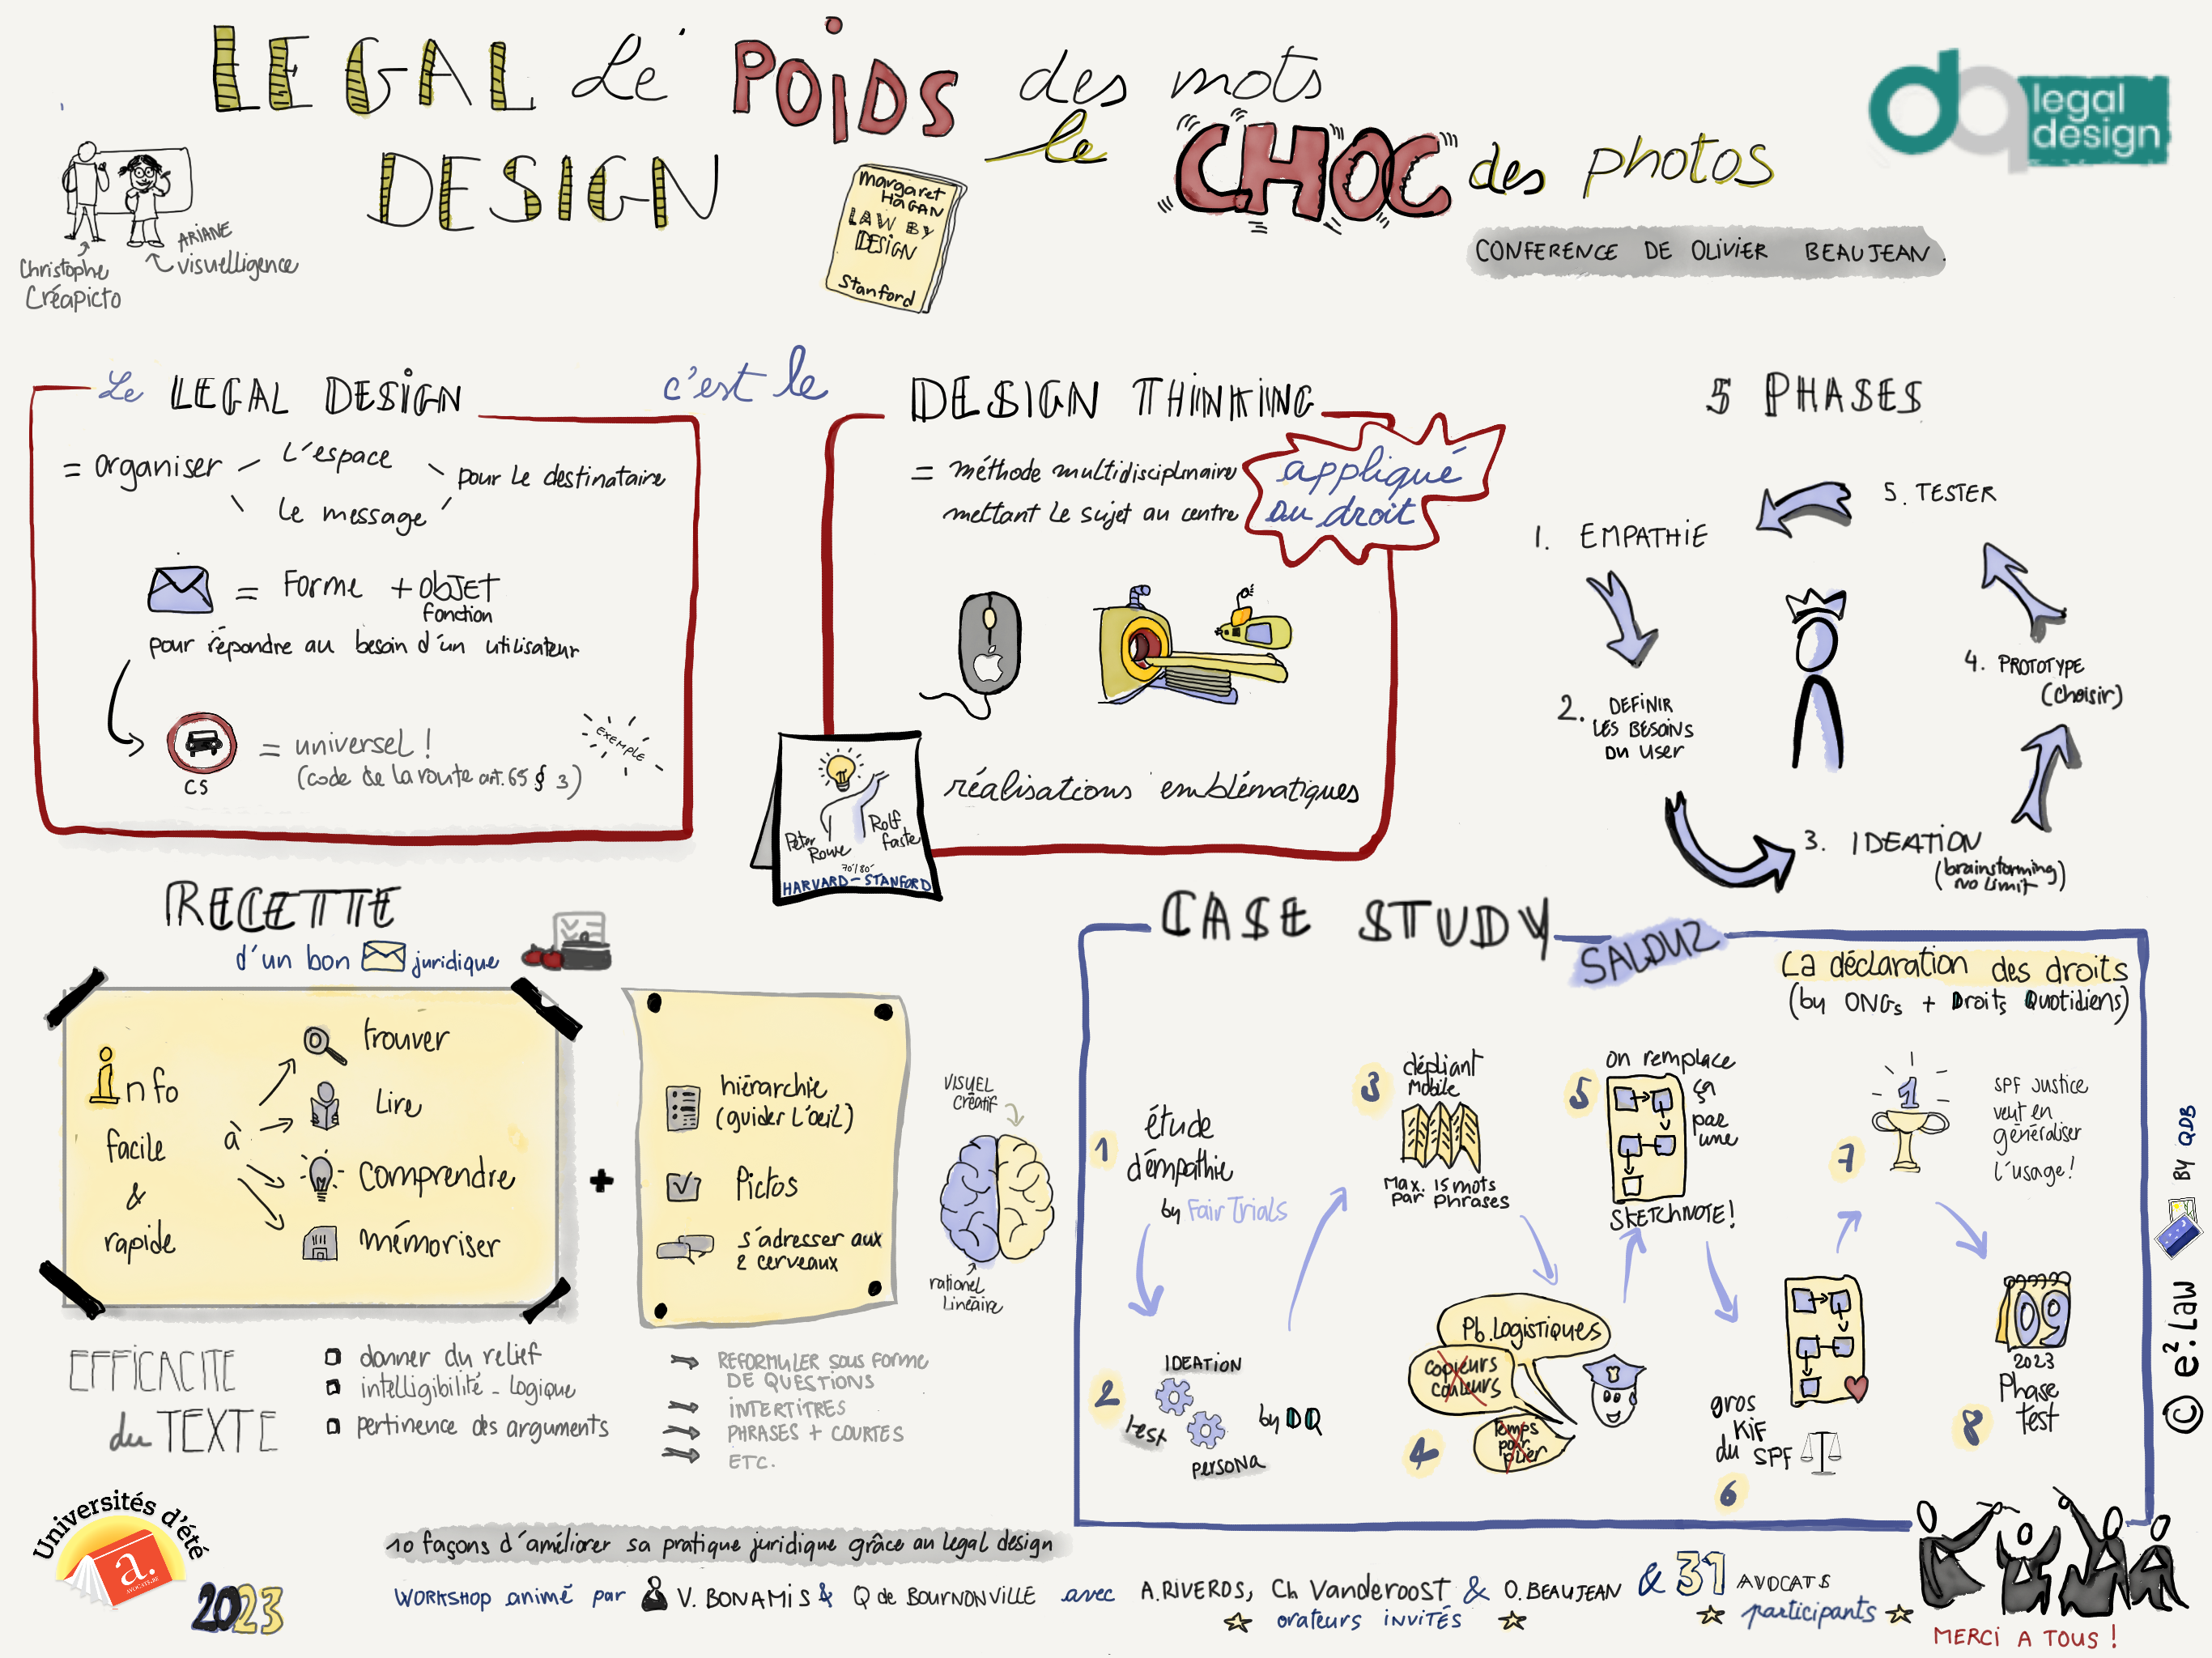 LEGAL
DESIGN
Le POIDS des mots
le CHOC des photos
dq legal
design
Christophe
Créapicto
ARIANE
visuelligence
margaret
HAGAN
LAW BY
DESIGN
Stanford
CONFERENCE DE OLIVIER BEAUJEAN.
Le LEGAL DESIGN
= organiser
L'espace
Le message
pour le destinataire
= Forme + OBJET
fonction
pour répondre au besoin d'un utilisateur
C5
= universel !
(code de la route art. 65 § 3)
EXEMPLE
c'est le
DESIGN THINKING
= méthode multidisciplinaire
mettant le sujet au centre
appliqué
au droit
réalisations emblématiques
Peter
Rowe
Rolf
Faste
70'/80'
HARVARD - STANFORD
5 PHASES
1. EMPATHIE
2. DEFINIR
LES BESOINS
DU USER
3. IDEATION
(brainstorming)
no limit
4. PROTOTYPE
(choisir)
5. TESTER
RECETTE
d'un bon juridique
info
facile
&
rapide
à
trouver
Lire
comprendre
mémoriser
+
hiérarchie
(guider l'œil)
Pictos
s'adresser aux
2 cerveaux
VISUEL
Créatif
rationel
Linéaire
EFFICACITE
du TEXTE
donner du relief
intelligibilité - logique
pertinence des arguments
REFORMULER SOUS FORME
DE QUESTIONS
INTERTITRES
PHRASES + COURTES
ETC.
CASE STUDY
SALDUZ
La déclaration des droits
(by ONGs + Droits Quotidiens)
1
étude
d'empathie
by Fair Trials
2
IDEATION
test
persona
by DQ
3
dépliant
Mobile
Max. 15 mots
par phrases
4
Pb. Logistiques
copieurs
couleurs
Temps
pour
plier
5
on remplace
ça
par
une
SKETCHNOTE!
6
gros
KIF
du SPF
7
1
SPF Justice
veut en
généraliser
l'usage!
8
09
2023
Phase
test
© e².Law BY QDB
Universités d'été
a.
AVOCATS.BE
2023
10 façons d'améliorer sa pratique juridique grâce au legal design
WORKSHOP animé par V. BONAMIS & Q de BOURNONVILLE avec A.RIVEROS, Ch Vanderoost & O. BEAUJEAN & 31 AVOCATS
orateurs INVITÉS
participants
MERCI A TOUS !